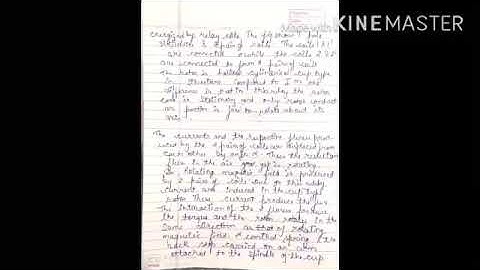 KINEMASTER
energized by relay side. The fig shows 4 pole
structure & 2 pair of coils. The coils 1 & 1'
are connected while the coils 2 2'
are connected to form 2 pair of coils
The rotor is hollow cylindrical cup type
in structure compared to I m the
difference is that in this relay the rotor
core is stationary and only rotor conduct
or portion is free to rotate about its
axis
The currents and the respective fluxes prod
uced by the 2 pairs of coils are displaced from
each other by angle α Thus the resultant
flux in the air gap is rotating.
So rotating magnetic field is produced
by 2 pairs of coils due to this eddy
current are induced in the cup type
rotor These current produce the flux
The interaction of the 2 fluxes produce
the torque and the rotor rotates in the
same direction as that of rotating
magnetic field. A control spring & the
back stop carried on an arm
attached to the spindle of the cup